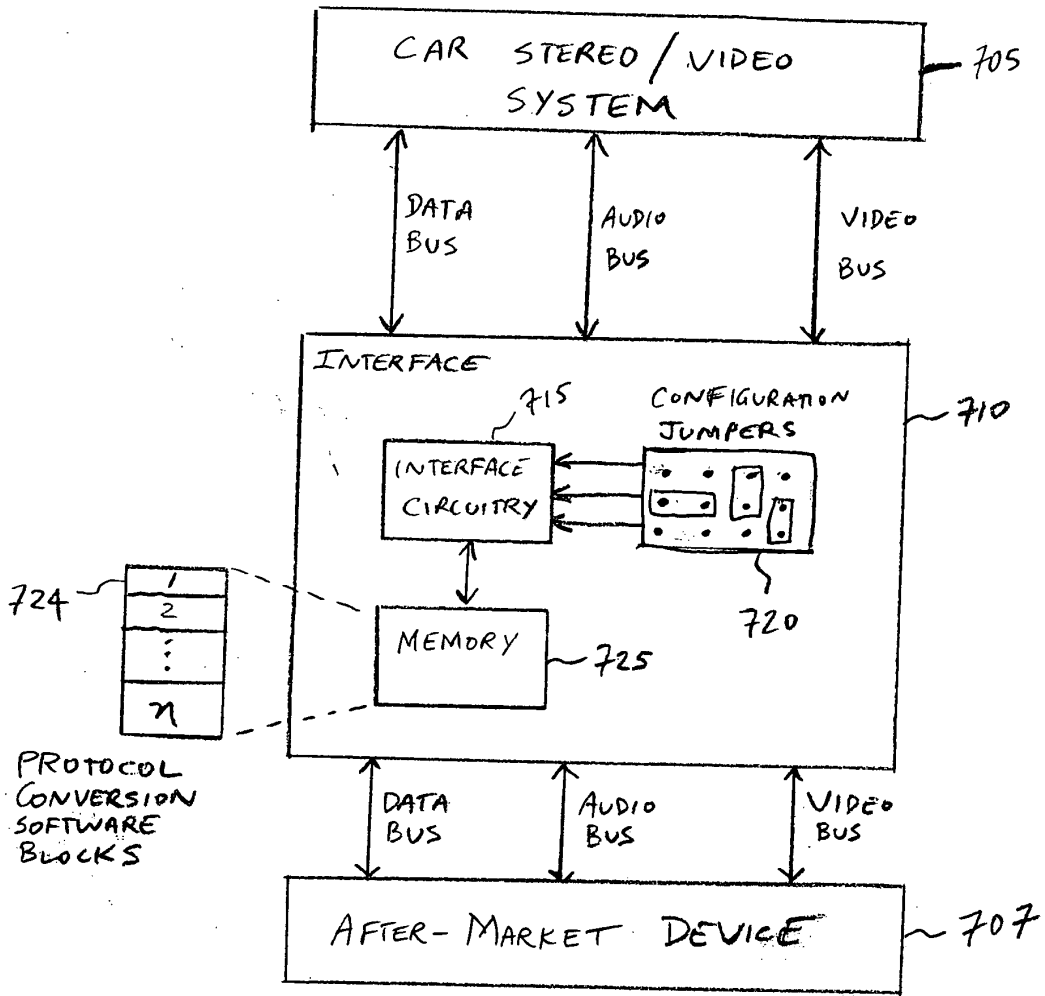 CAR STEREO / VIDEO
SYSTEM
705
DATA
BUS
AUDIO
BUS
VIDEO
BUS
INTERFACE
715
CONFIGURATION
JUMPERS
710
INTERFACE
CIRCUITRY
720
724
1
2
n
MEMORY
725
PROTOCOL
CONVERSION
SOFTWARE
BLOCKS
DATA
BUS
AUDIO
BUS
VIDEO
BUS
AFTER-MARKET DEVICE
707